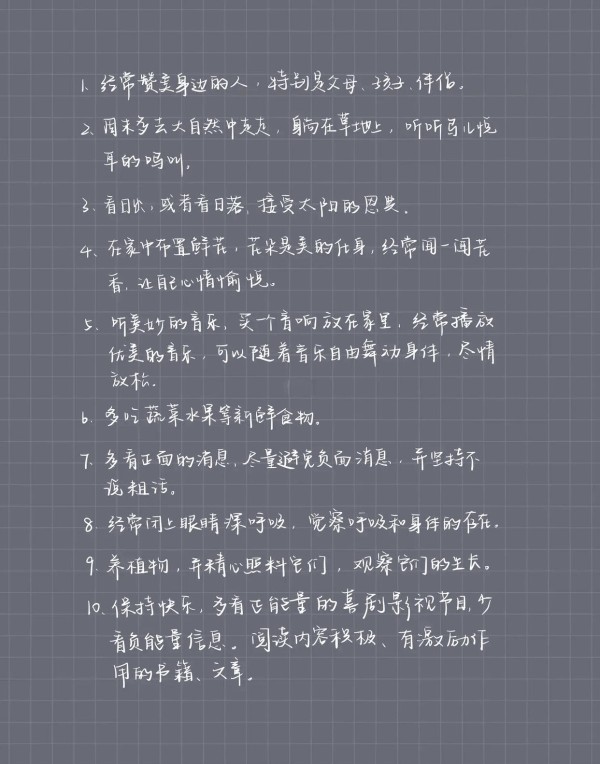 1. 经常赞美身边的人，特别是父母、孩子、伴侣。
2. 周末多去大自然中走走，躺在草地上，听听鸟儿悦
耳的鸣叫。
3. 看日出，或者看日落，接受太阳的恩典。
4. 在家中布置鲜花，花朵是美的化身，经常闻一闻花
香，让自己心情愉悦。
5. 听美妙的音乐，买个音响放在家里，经常播放
优美的音乐，可以随着音乐自由舞动身体，尽情
放松。
6. 多吃蔬菜水果等新鲜食物。
7. 多看正面的消息，尽量避免负面消息，并坚持不
说粗话。
8. 经常闭上眼睛深呼吸，觉察呼吸和身体的存在。
9. 养植物，并精心照料它们，观察它们的生长。
10. 保持快乐，多看正能量的喜剧影视节目，少
看负能量信息。阅读内容积极、有激励作
用的书籍、文章。